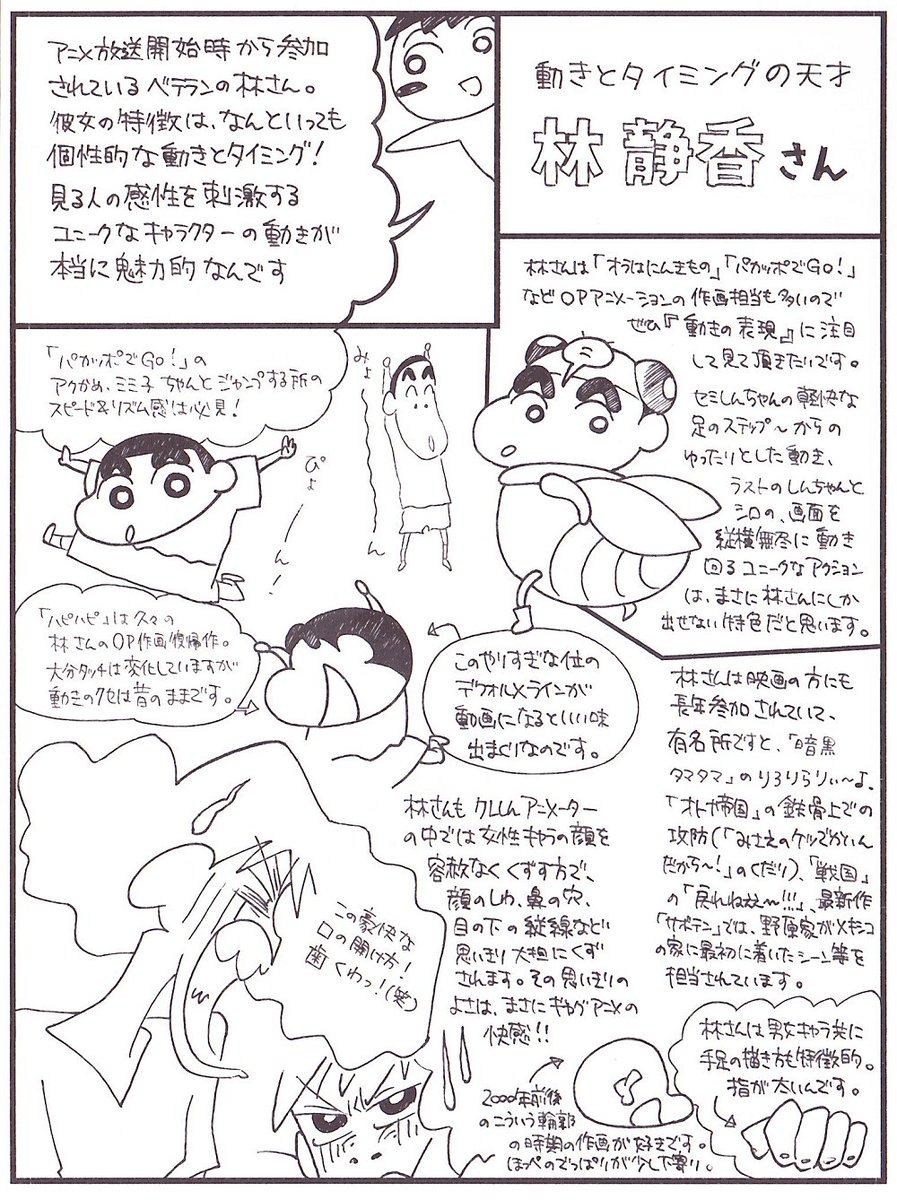 動きとタイミングの天才
林 静香さん
アニメ放送開始時から参加
されているベテランの林さん。
彼女の特徴は、なんといっても
個性的な動きとタイミング！
見る人の感性を刺激する
ユニークなキャラクターの動きが
本当に魅力的なんです
林さんは「オラはにんきもの」「パカッポでGO！」
などOPアニメーションの作画相当も多いので
ぜひ『動きの表現』に注目
して見て頂きたいです。
セミしんちゃんの軽快な
足のステップ～からの
ゆったりとした動き、
ラストのしんちゃんと
シロの、画面を
縦横無尽に動き
回るユニークなアクション
は、まさに林さんにしか
出せない特色だと思います。
「パカッポでGO！」の
アクかめ、ミミ子ちゃんとジャンプする所の
スピード&リズム感は必見！
みょーーん
ぴょーーん！
「ハピハピ」は久々の
林さんのOP作画復帰作。
大分タッチは変化していますが
動きのクセは昔のままです。
このやりすぎな位の
デフォルメラインが
動画になるといい味
出まくりなのです。
林さんは映画の方にも
長年参加されていて、
有名所ですと、「暗黒
タマタマ」のりろりらりぃ～よ、
「オトナ帝国」の鉄骨上での
攻防（「みさえのケツでかいん
だから～！」のくだり）、「戦国」
の「戻れねぇ～!!!」、最新作
「サボテン」では、野原家がメキシコ
の家に最初に着いたシーン等を
担当されています。
林さんもクレしんアニメーター
の中では女性キャラの顔を
容赦なくくずす方で、
顔のしわ、鼻の穴、
目の下の縦線など
思いきり大胆にくず
されます。その思いきりの
よさは、まさにギャグアニメの
快感!!
この豪快な
口の開け方！
歯くわっ！（笑）
2000年前後
のこういう輪郭
の時期の作画が好きです。
ほっぺのでっぱりが少し下寄り。
林さんは男女キャラ共に
手足の描き方も特徴的。
指が太いんです。